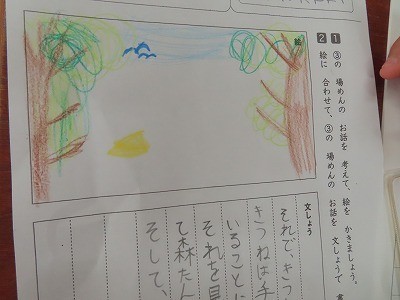 1 ③の 場めんの お話を 考えて、絵を かきましょう。
2 絵に 合わせて、③の 場めんの お話を 文しょうで
絵
文しょう
それで、きつ
きつねは手
いることに
それを見
て森たん
そして、